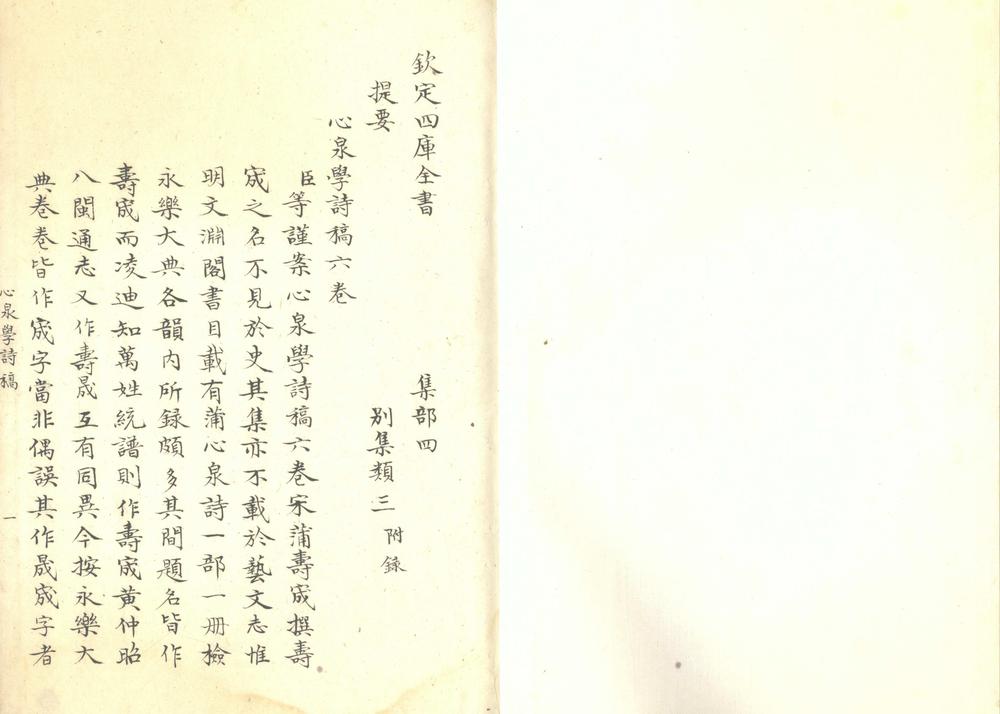 欽定四庫全書 集部四
提要 別集類三 附錄
心泉學詩稿六卷
臣等謹案心泉學詩稿六卷宋蒲壽宬撰壽
宬之名不見於史其集亦不載於藝文志惟
明文淵閣書目載有蒲心泉詩一部一冊檢
永樂大典各韻内所録頗多其間題名皆作
壽宬而凌迪知萬姓統譜則作壽宬黄仲昭
八閩通志又作壽晟互有同異今按永樂大
典卷卷皆作宬字當非偶誤其作晟宬字者
心泉學詩稿 一